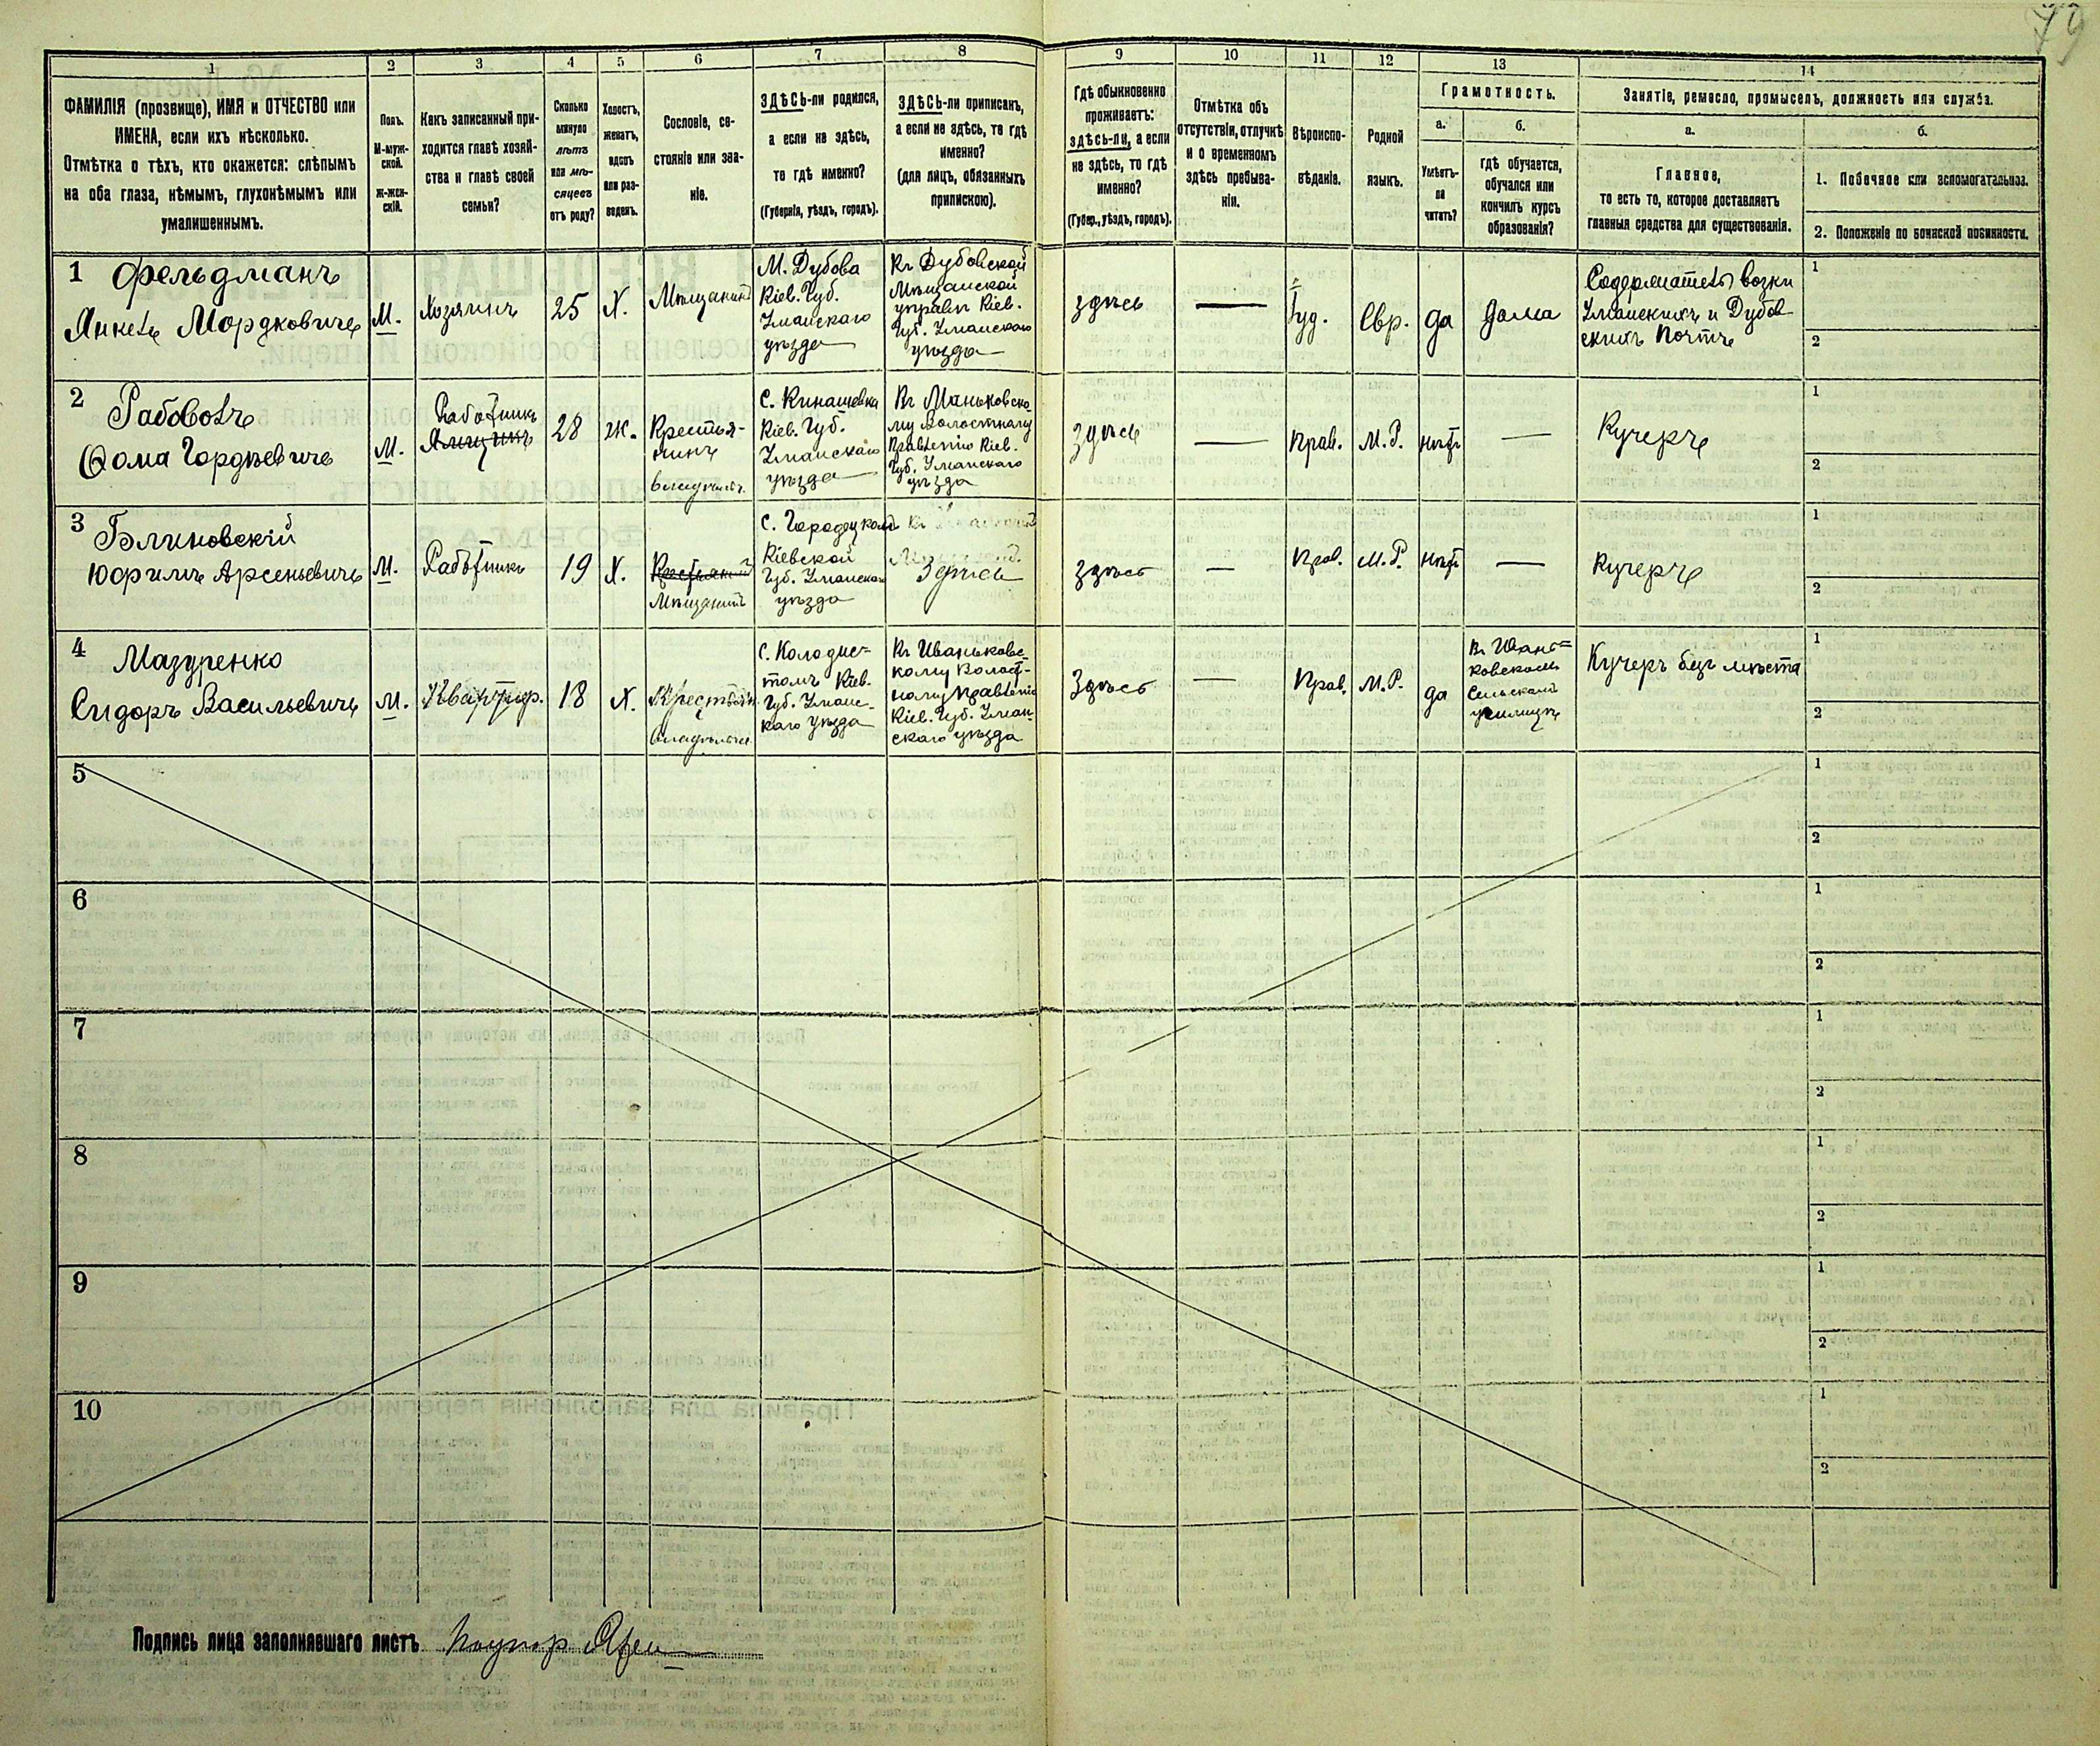 79
1
2
3
4
5
6
7
8
9
10
11
12
13
14
ФАМИЛІЯ (прозвище), ИМЯ и ОТЧЕСТВО или
ИМЕНА, если ихъ нѣсколько.
Отмѣтка о тѣхъ, кто окажется: слѣпымъ
на оба глаза, нѣмымъ, глухонѣмымъ или
умалишеннымъ.
Полъ.
М-муж-
ской.
Ж-жен-
скій.
Какъ записанный при-
ходится главѣ хозяй-
ства и главѣ своей
семьи?
Сколько
минуло
лѣтъ
или мѣ-
сяцевъ
отъ роду?
Холостъ,
женатъ,
вдовъ
или раз-
веденъ.
Сословіе, со-
стояніе или зва-
ніе.
ЗДѢСЬ-ли родился,
а если не здѣсь,
то гдѣ именно?
(Губернія, уѣздъ, городъ).
ЗДѢСЬ-ли приписанъ,
а если не здѣсь, то гдѣ
именно?
(для лицъ, обязанныхъ
припискою).
Гдѣ обыкновенно
проживаетъ:
здѣсь-ли, а если
не здѣсь, то гдѣ
именно?
(Губер., уѣздъ, городъ).
Отмѣтка объ
отсутствіи, отлучкѣ
и о временномъ
здѣсь пребыва-
ніи.
Вѣроиспо-
вѣданіе.
Родной
языкъ.
Грамотность.
а.
Умѣетъ-
ли
читать?
б.
гдѣ обучается,
обучался или
кончилъ курсъ
образованія?
Занятіе, ремесло, промыселъ, должность или служба.
а.
Главное,
то есть то, которое доставляетъ
главныя средства для существованія.
б.
1. Побочное или вспомогательное.
2. Положеніе по воинской повинности.
1 Фельдманъ
Янкель Мордковичъ
М.
Хозяинъ
25
Х.
Мѣщанинъ
М. Дубова
Кіев. Губ.
Уманскаго
уѣзда
Къ Дубовской
Мѣщанской
управѣ Кіев.
Губ. Уманскаго
уѣзда
здѣсь
—
Іуд.
Евр.
да
дома
Содержатель возки
Уманскихъ и Дубов-
скихъ Почтъ
1
2
2 Рабоволъ
Ѳома Гордѣевичъ
М.
Работникъ
28
ж.
Крестья-
нинъ
С. Кинашевка
Кіев. Губ.
Уманскаго
уѣзда
Къ Маньковско-
му Волостному
Правленію Кіев.
Губ. Уманскаго
уѣзда
здѣсь
—
Прав.
М.Р.
нѣтъ
—
Кучеръ
1
2
3 Блиновскій
Юфимъ Арсеньевичъ
М.
Работникъ
19
Х.
Крестьянинъ
Мѣщанинъ
С. Городецкомъ
Кіевской
Губ. Уманскаго
уѣзда
Здѣсь
здѣсь
—
Прав.
М.Р.
нѣтъ
—
Кучеръ
1
2
4 Мазуренко
Сидоръ Васильевичъ
М.
Квартир.
18
Х.
С. Колодис-
томъ Кіев.
Губ. Уманс-
каго уѣзда
Къ Иваньковс-
кому Волост-
ному Правленію
Кіев. Губ. Уман-
скаго уѣзда
Здѣсь
—
Прав.
М.Р.
да
Въ Ивань-
ковскомъ
Сельскомъ
училищѣ
Кучеръ безъ мѣста
1
2
5
1
2
6
1
2
7
1
2
8
1
2
9
1
2
10
1
2
Подпись лица заполнявшаго листъ